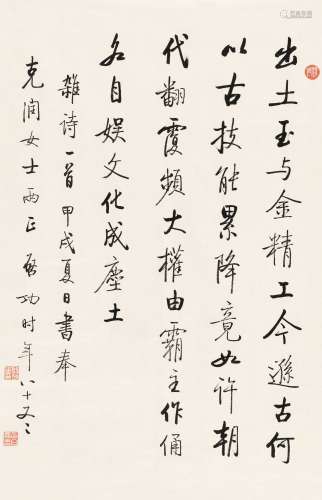 出土玉与金精工今逊古何
以古技能累降竟如许朝
代翻覆频大權由霸主作俑
名自娱文化成塵土
雜诗一首甲戌夏日书奉
克润女士两正启功时年八十又二